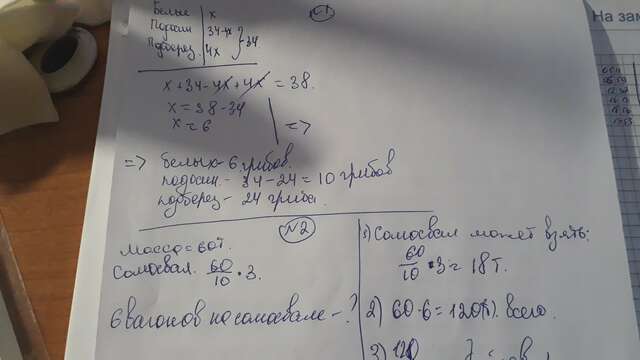 №1
Белые x
Подосин 34-4x
Подберез. 4x } -34
x+34-4x+4x = 38.
x = 38-34
x = 6 =>
=> Белых- 6 грибов.
подосин. - 34-24 = 10 грибов
подберез - 24 гриба.
№2
Масса = 60т.
Самосвал. 60/10 · 3.
6 вагонов на самосвале - ?
1) Самосвал может взять:
60/10 · 3 = 18 т.
2) 60·6 = 120(т). всего.
3) 120
На зам